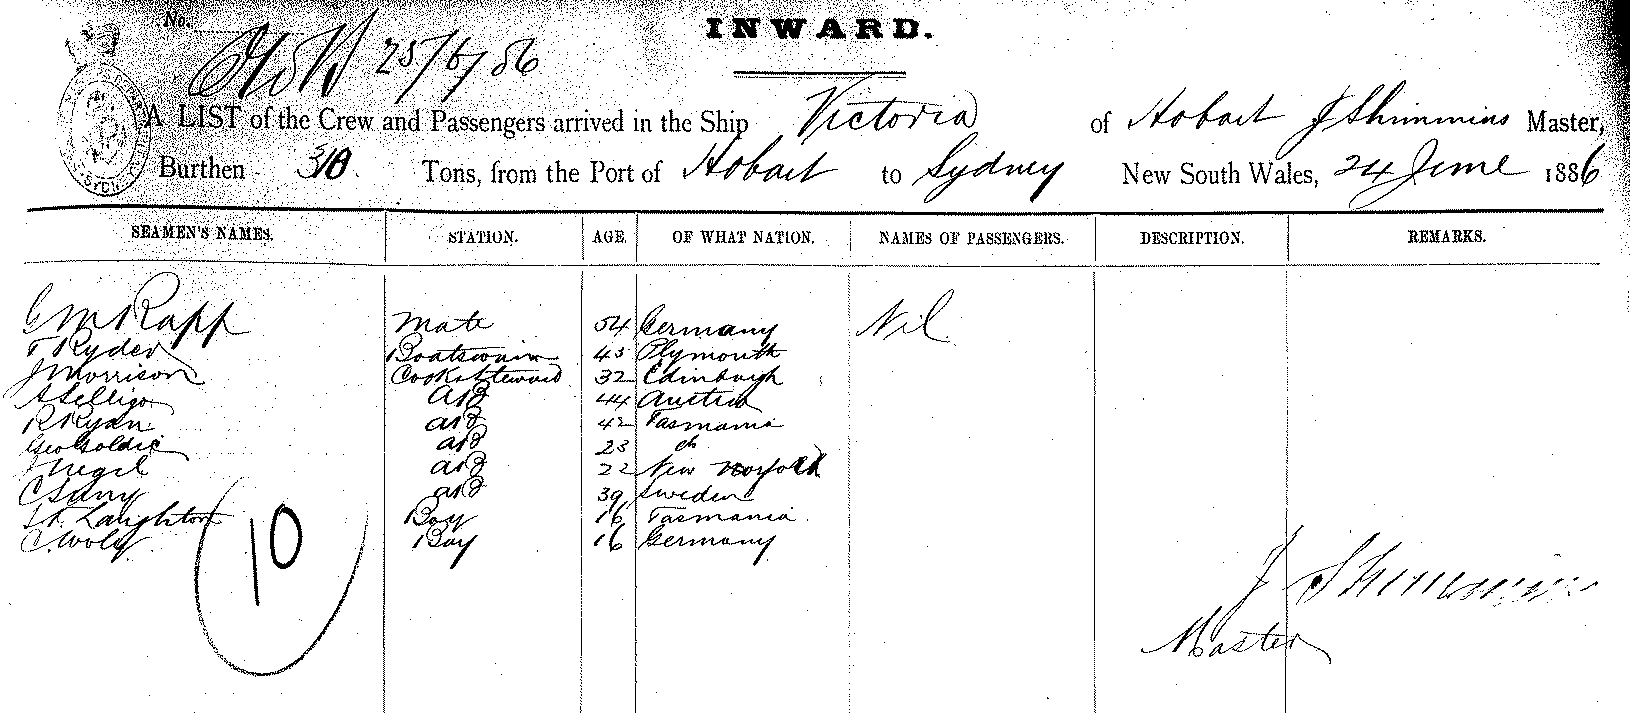 No.
INWARD.
25/6/86
A LIST of the Crew and Passengers arrived in the Ship Victoria of Hobart J Shimmins Master,
Burthen 310. Tons, from the Port of Hobart to Sydney New South Wales, 24 June 1886
SEAMEN'S NAMES. STATION. AGE. OF WHAT NATION. NAMES OF PASSENGERS. DESCRIPTION. REMARKS.
G M Rapp Mate 54 Germany Nil
T Ryder Boatswain 43 Plymouth
J Morrison Cook & Steward 32 Edinburgh
AB 44 Austria
R Ryan AB 42 Tasmania
Geo Goldie AB 23 do
AB 22 New Norfolk
AB 39 Sweden
Laughton Boy 16 Tasmania
C. Wolf Boy 16 Germany
10
J Shimmins
Master